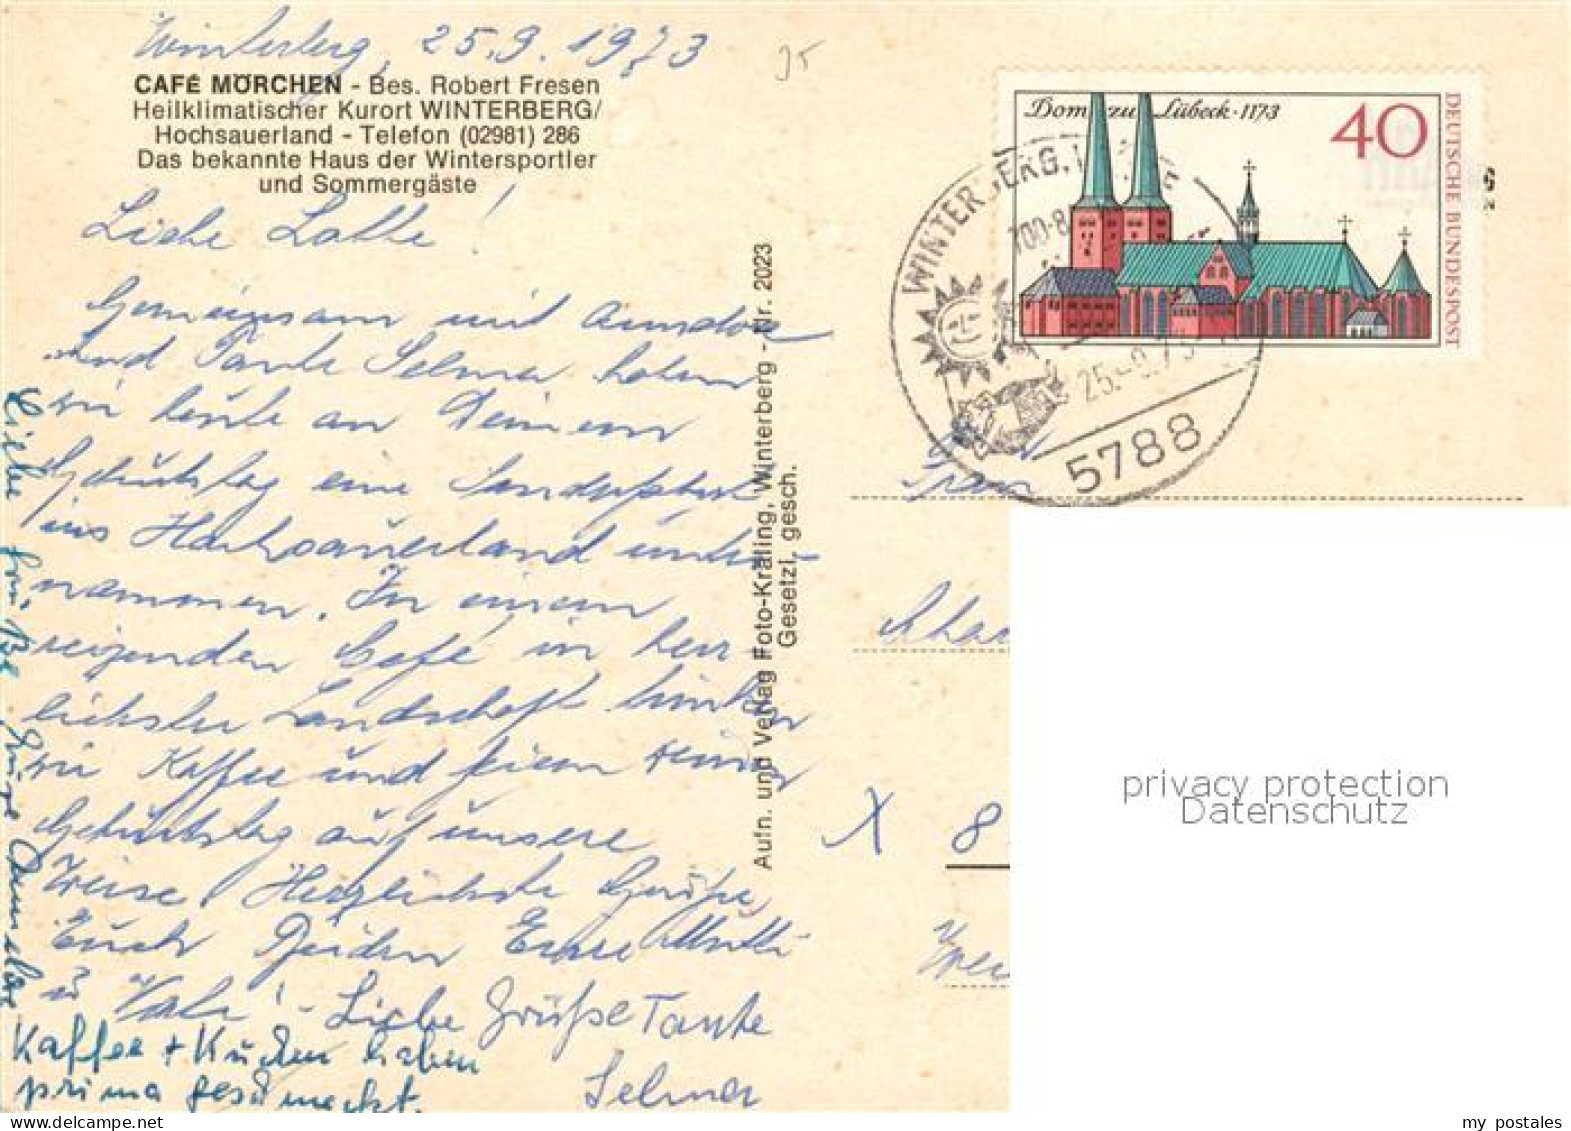 Winterberg, 25.9.1973
CAFÉ MÖRCHEN - Bes. Robert Fresen
Heilklimatischer Kurort WINTERBERG/
Hochsauerland - Telefon (02981) 286
Das bekannte Haus der Wintersportler
und Sommergäste
Liebe Lotte!
Gemeinsam mit
und Tante Selma haben
wir heute an Deinem
Geburtstag eine Landpartie
ins Hochsauerland unter-
nommen. In einem
reizenden Café in herr-
lichster Landschaft trinken
wir Kaffee und feiern Deinen
Geburtstag auf unsere
Weise. Herzlichste Grüße
Euch Beiden Eure Mutti
u. Vati! - Liebe Grüße Tante
Selma
Kaffee + Kuchen haben
prima geschmeckt.
Liebe Grüße
Aufn. und Verlag Foto-Kräling, Winterberg - Nr. 2023
Gesetzl. gesch.
35
Dom zu Lübeck · 1173
40
DEUTSCHE BUNDESPOST
WINTERBERG,
700-8
25.-9.73
5788
Frau
X 8
privacy protection
Datenschutz
my postales